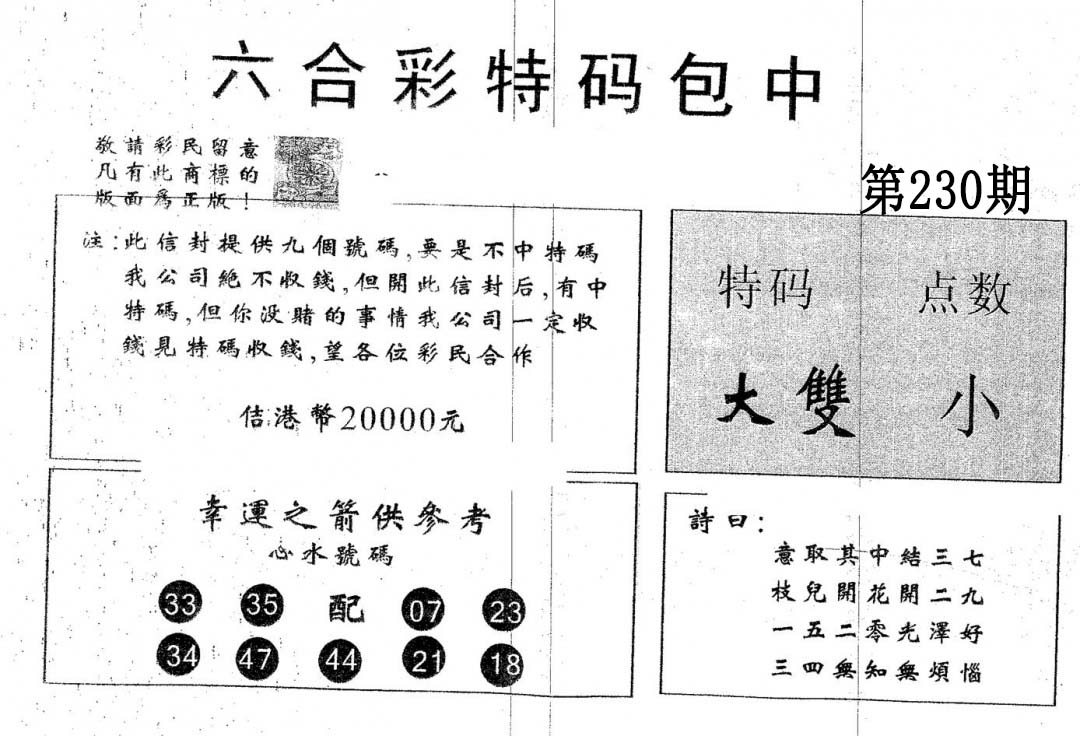 六合彩特码包中
敬請彩民留意
凡有此商標的
版面爲正版！
第230期
注：此信封提供九個號碼,要是不中特碼
我公司絶不收錢,但開此信封后,有中
特碼,但你没賭的事情我公司一定收
錢見特碼收錢,望各位彩民合作
佶港幣20000元
特码 点数
大雙 小
幸運之箭供參考
心水號碼
33 35 配 07 23
34 47 44 21 18
詩曰：
意取其中結三七
枝兒開花開二九
一五二零光澤好
三四無知無煩惱